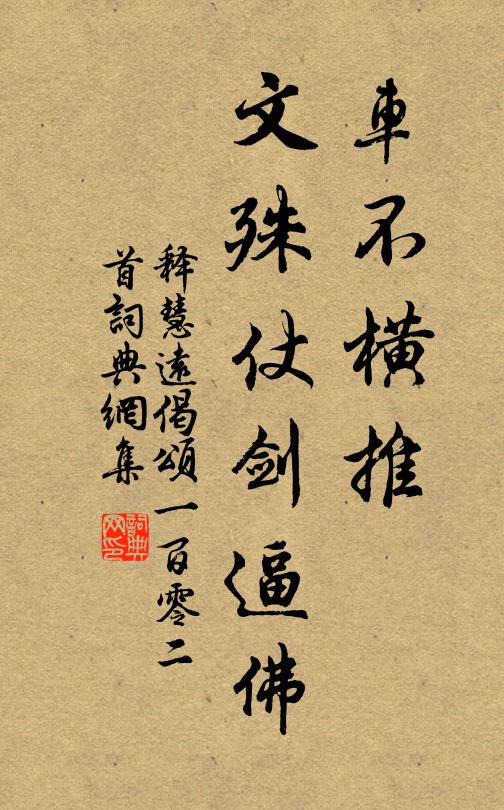 車不橫推
文殊仗剑逼佛
释慧遠偈頌一百零二
首詞典網集
詞典
网印